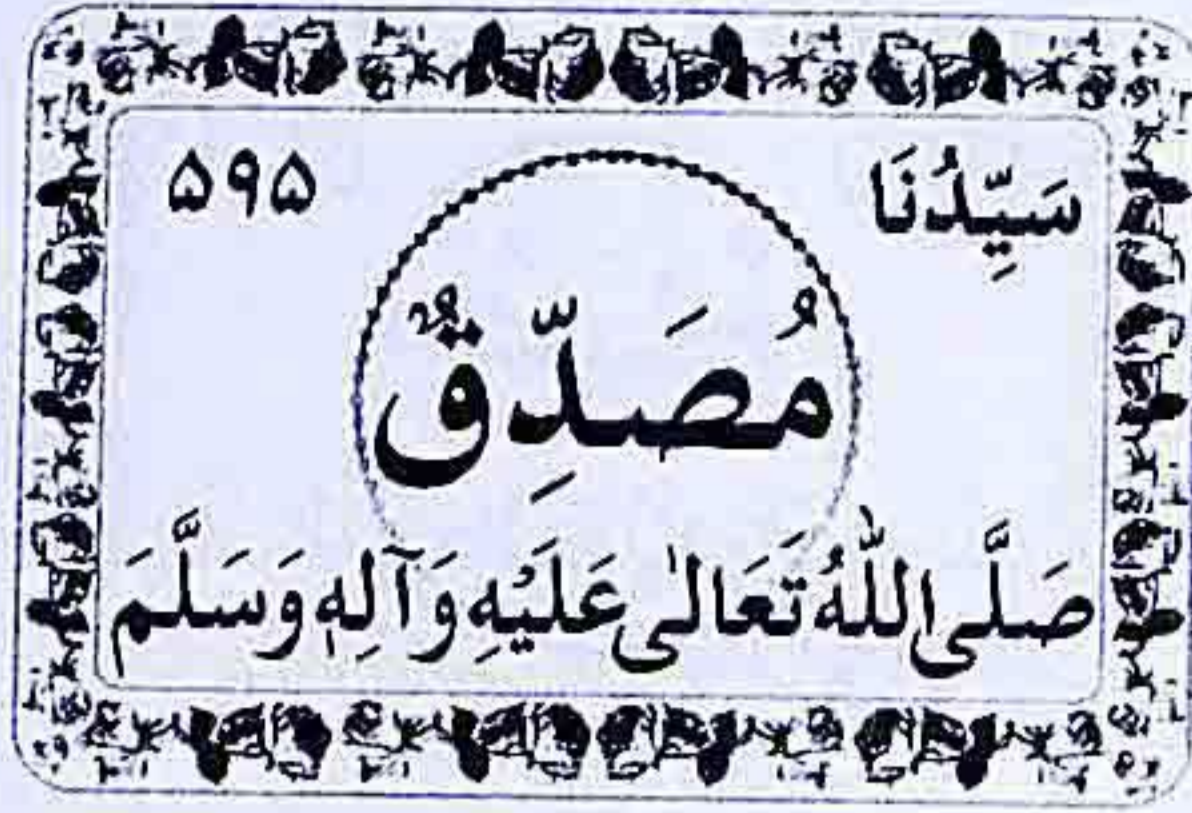 سَيِّدُنَا ۵۹۵
مُصَدِّقٌ
صَلَّى اللّٰهُ تَعَالٰى عَلَيْهِ وَآلِهٖ وَسَلَّمَ